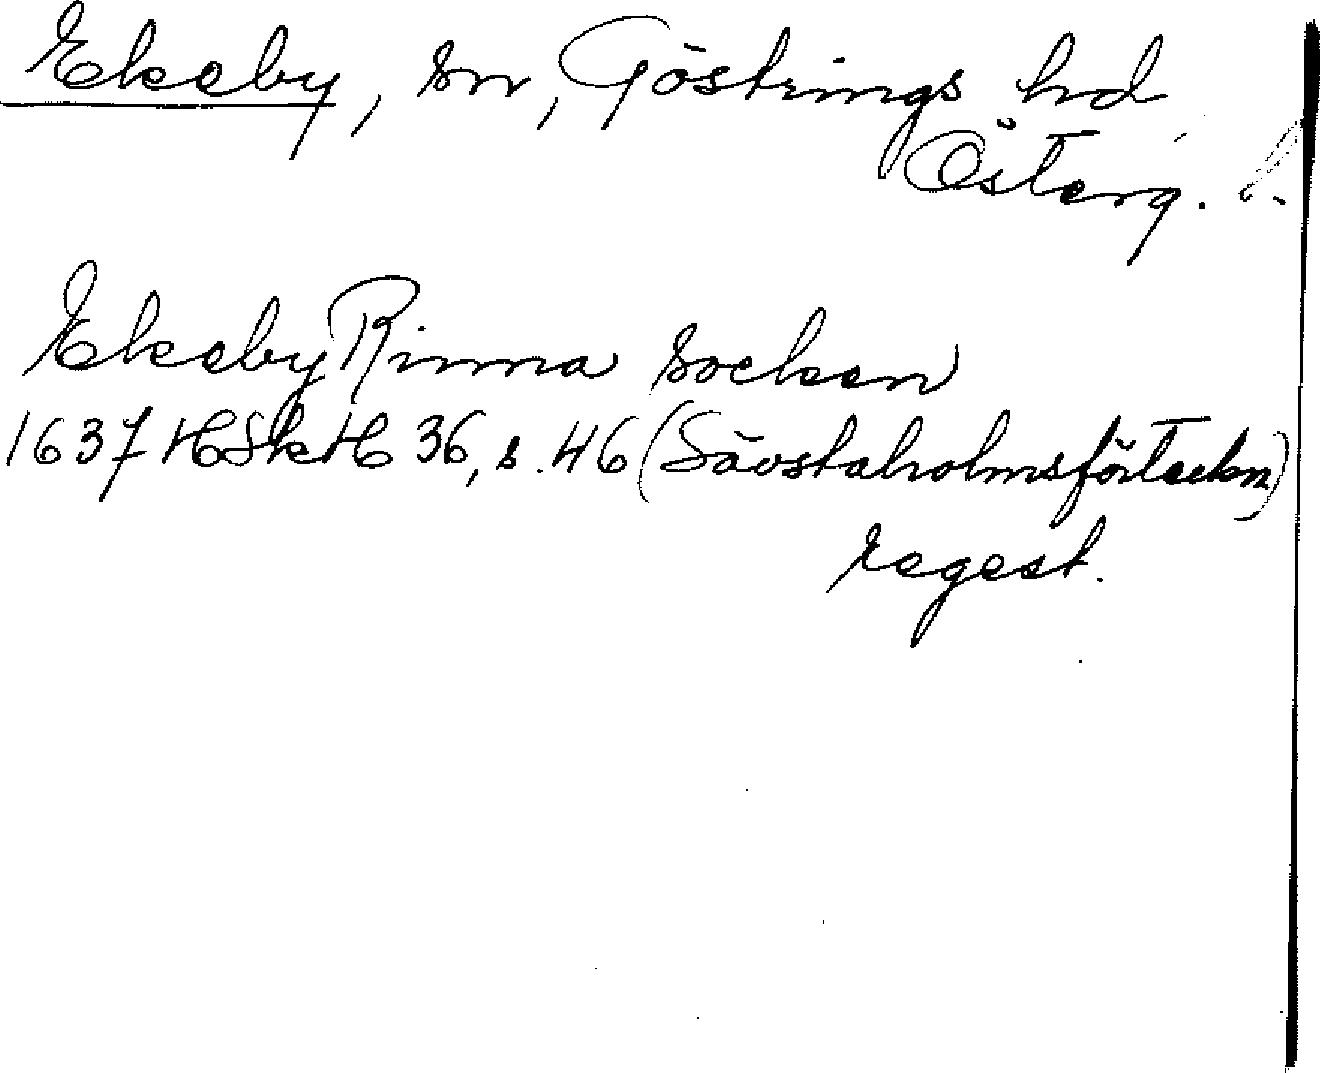 Ekeby, sn, Göstrings hd
Österg. l.
Ekeby Rinna socken
1637 HSkH 36, s. 46 (Sävstaholmsförteckn)
regest.